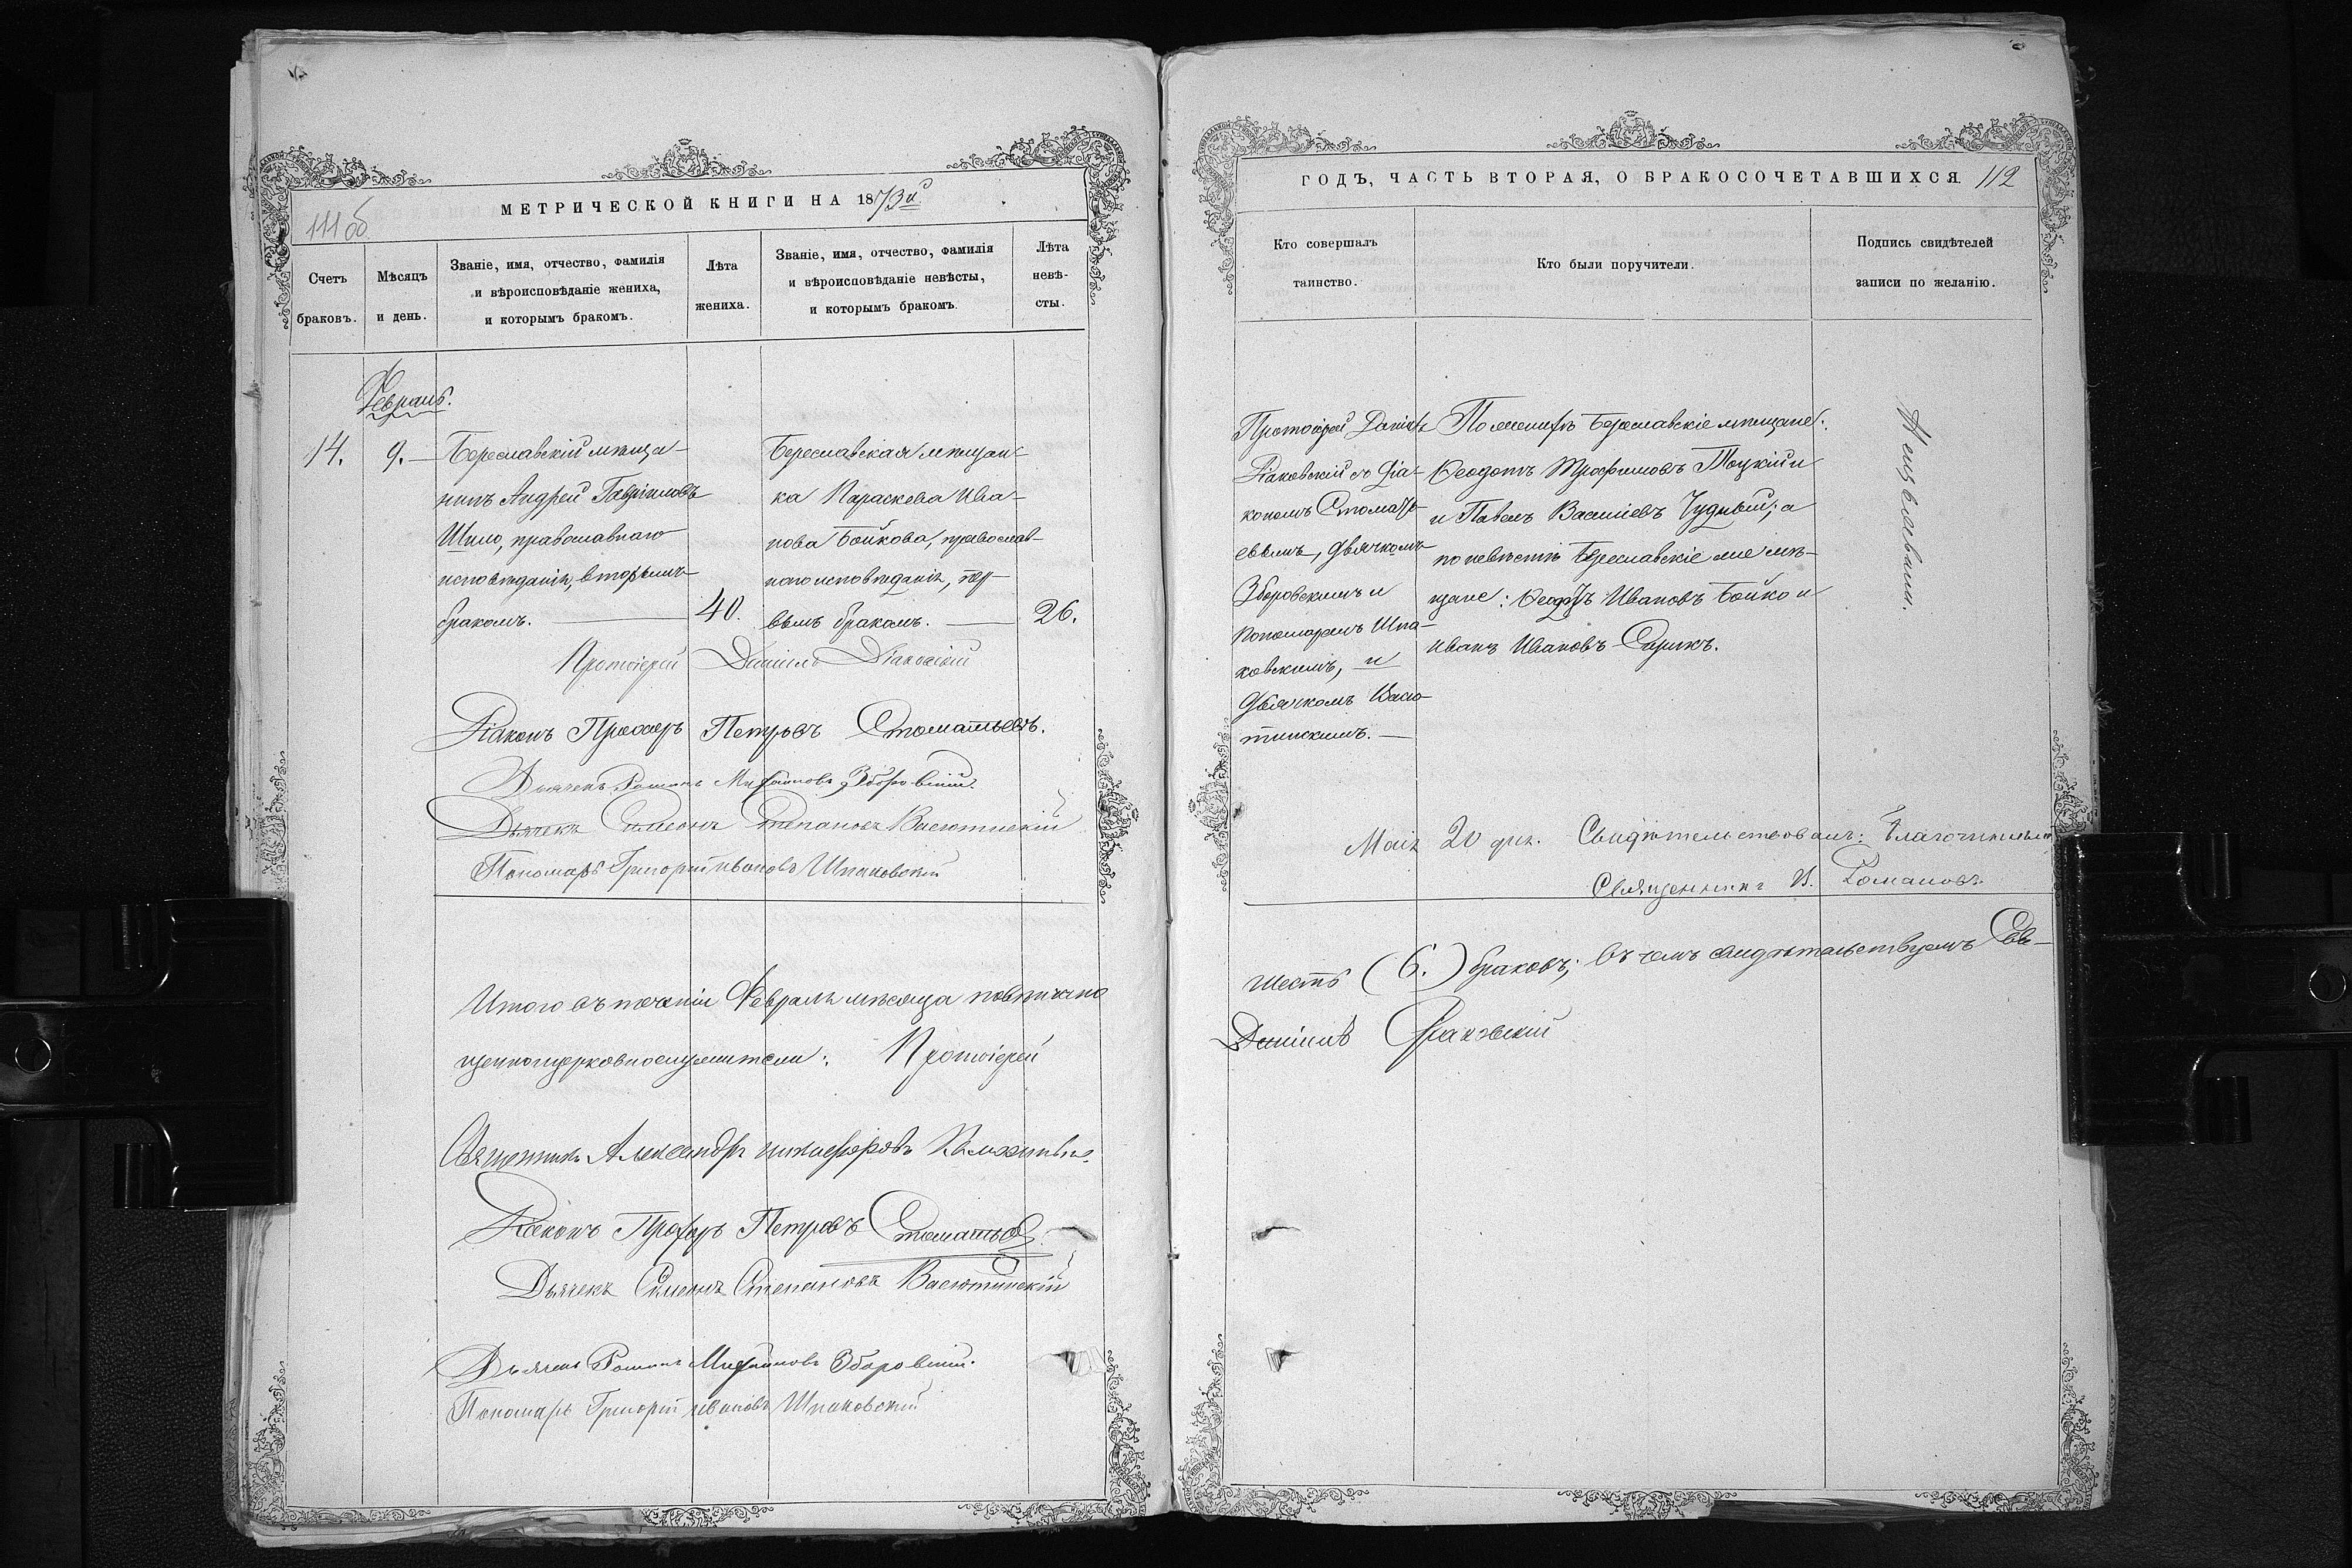 МЕТРИЧЕСКОЙ КНИГИ НА 1873й
111 об.
Счетъ браковъ.
Мѣсяцъ и день.
Званіе, имя, отчество, фамилія
и вѣроисповѣданіе жениха,
и которымъ бракомъ.
Лѣта жениха.
Званіе, имя, отчество, фамилія
и вѣроисповѣданіе невѣсты,
и которымъ бракомъ.
Лѣта невѣ-
сты.
Февраль.
14.
9.
Береславскій мѣща-
нинъ Андрей Гавріиловъ
Шило, православнаго
исповѣданія, вторымъ
бракомъ.
40.
Береславская мѣщан-
ка Параскева Ива-
нова Бойкова, православ-
ного исповѣданія, пер-
вымъ бракомъ.
26.
Протоіерей Даніилъ Діаковскій
Діаконъ Прохоръ Петровъ Стоматьевъ.
Дьячекъ Романъ Михайловъ Зборовскій.
Дьячекъ Симеонъ Степановъ Васютинскій
Пономарь Григорій Ивановъ Шпаковскій
Итого въ теченіи Февраля мѣсяца повѣнчано
щенноцерковнослужители: Протоіерей
Священникъ Александръ Никифоровъ
Діаконъ Прохоръ Петровъ Стоматьев
Дьячекъ Симеонъ Степановъ Васютинскій
Дьячекъ Романъ Михайловъ Зборовскій.
Пономарь Григорій Ивановъ Шпаковскій
ГОДЪ, ЧАСТЬ ВТОРАЯ, О БРАКОСОЧЕТАВШИХСЯ. 112
Кто совершалъ
таинство.
Кто были поручители.
Подпись свидѣтелей
записи по желанію.
Протоіерей Даніилъ
Діаковскій съ Діа-
кономъ Стомать-
евымъ, дьячкомъ
Зборовскимъ и
пономаремъ Шпа-
ковскимъ, и
дьячкомъ Васю-
тинскимъ.
По женихѣ Береславскіе мѣщане:
Ѳеодотъ Трофимовъ Тоцкій и
и Павелъ Василіевъ Чудный; а
по невѣстѣ Береславскіе же мѣ-
щане: Ѳеодоръ Ивановъ Бойко и
Иванъ Ивановъ
Не изъявили.
Маія 20 дня. Свидѣтельствовалъ: Благочинный
Священникъ И. Романовъ
шесть (6.) браковъ; въ чемъ свидѣтельствуемъ Свя-
Даніилъ Діаковскій